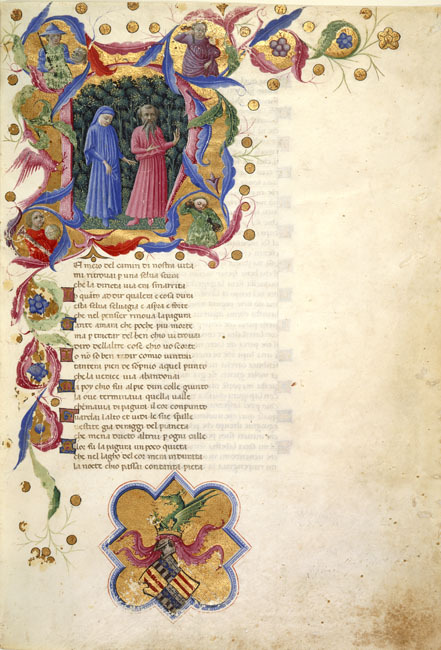 El mezo del camin di nostra uita
mi ritrouai p una selua scura
che la diricta uia era smarrita
quanto adir qualera e cosa dura
esta selua seluagia e aspra e forte
che nel pensier rinoua la paura
ante amara che poche piu morte
ma p tractar del ben chio ui trouai
diro dellaltre cose chio uo scorte
o no so ben ridir comio uintrai
tantera pien de sopnio aquel punto
che la uerace uia abandonai
a poy chio fui alpie dun colle giunto
la oue terminaua quella ualle
che mauia di paura il cor conpunto
uardai i alto et uidi le sue spalle
uestite gia diraggi del pianeta
che mena dricto altrui p ogni calle
fu la paura un poco queta
che nel lagho del cor mera indurata
la nocte chio passai contanta pieta